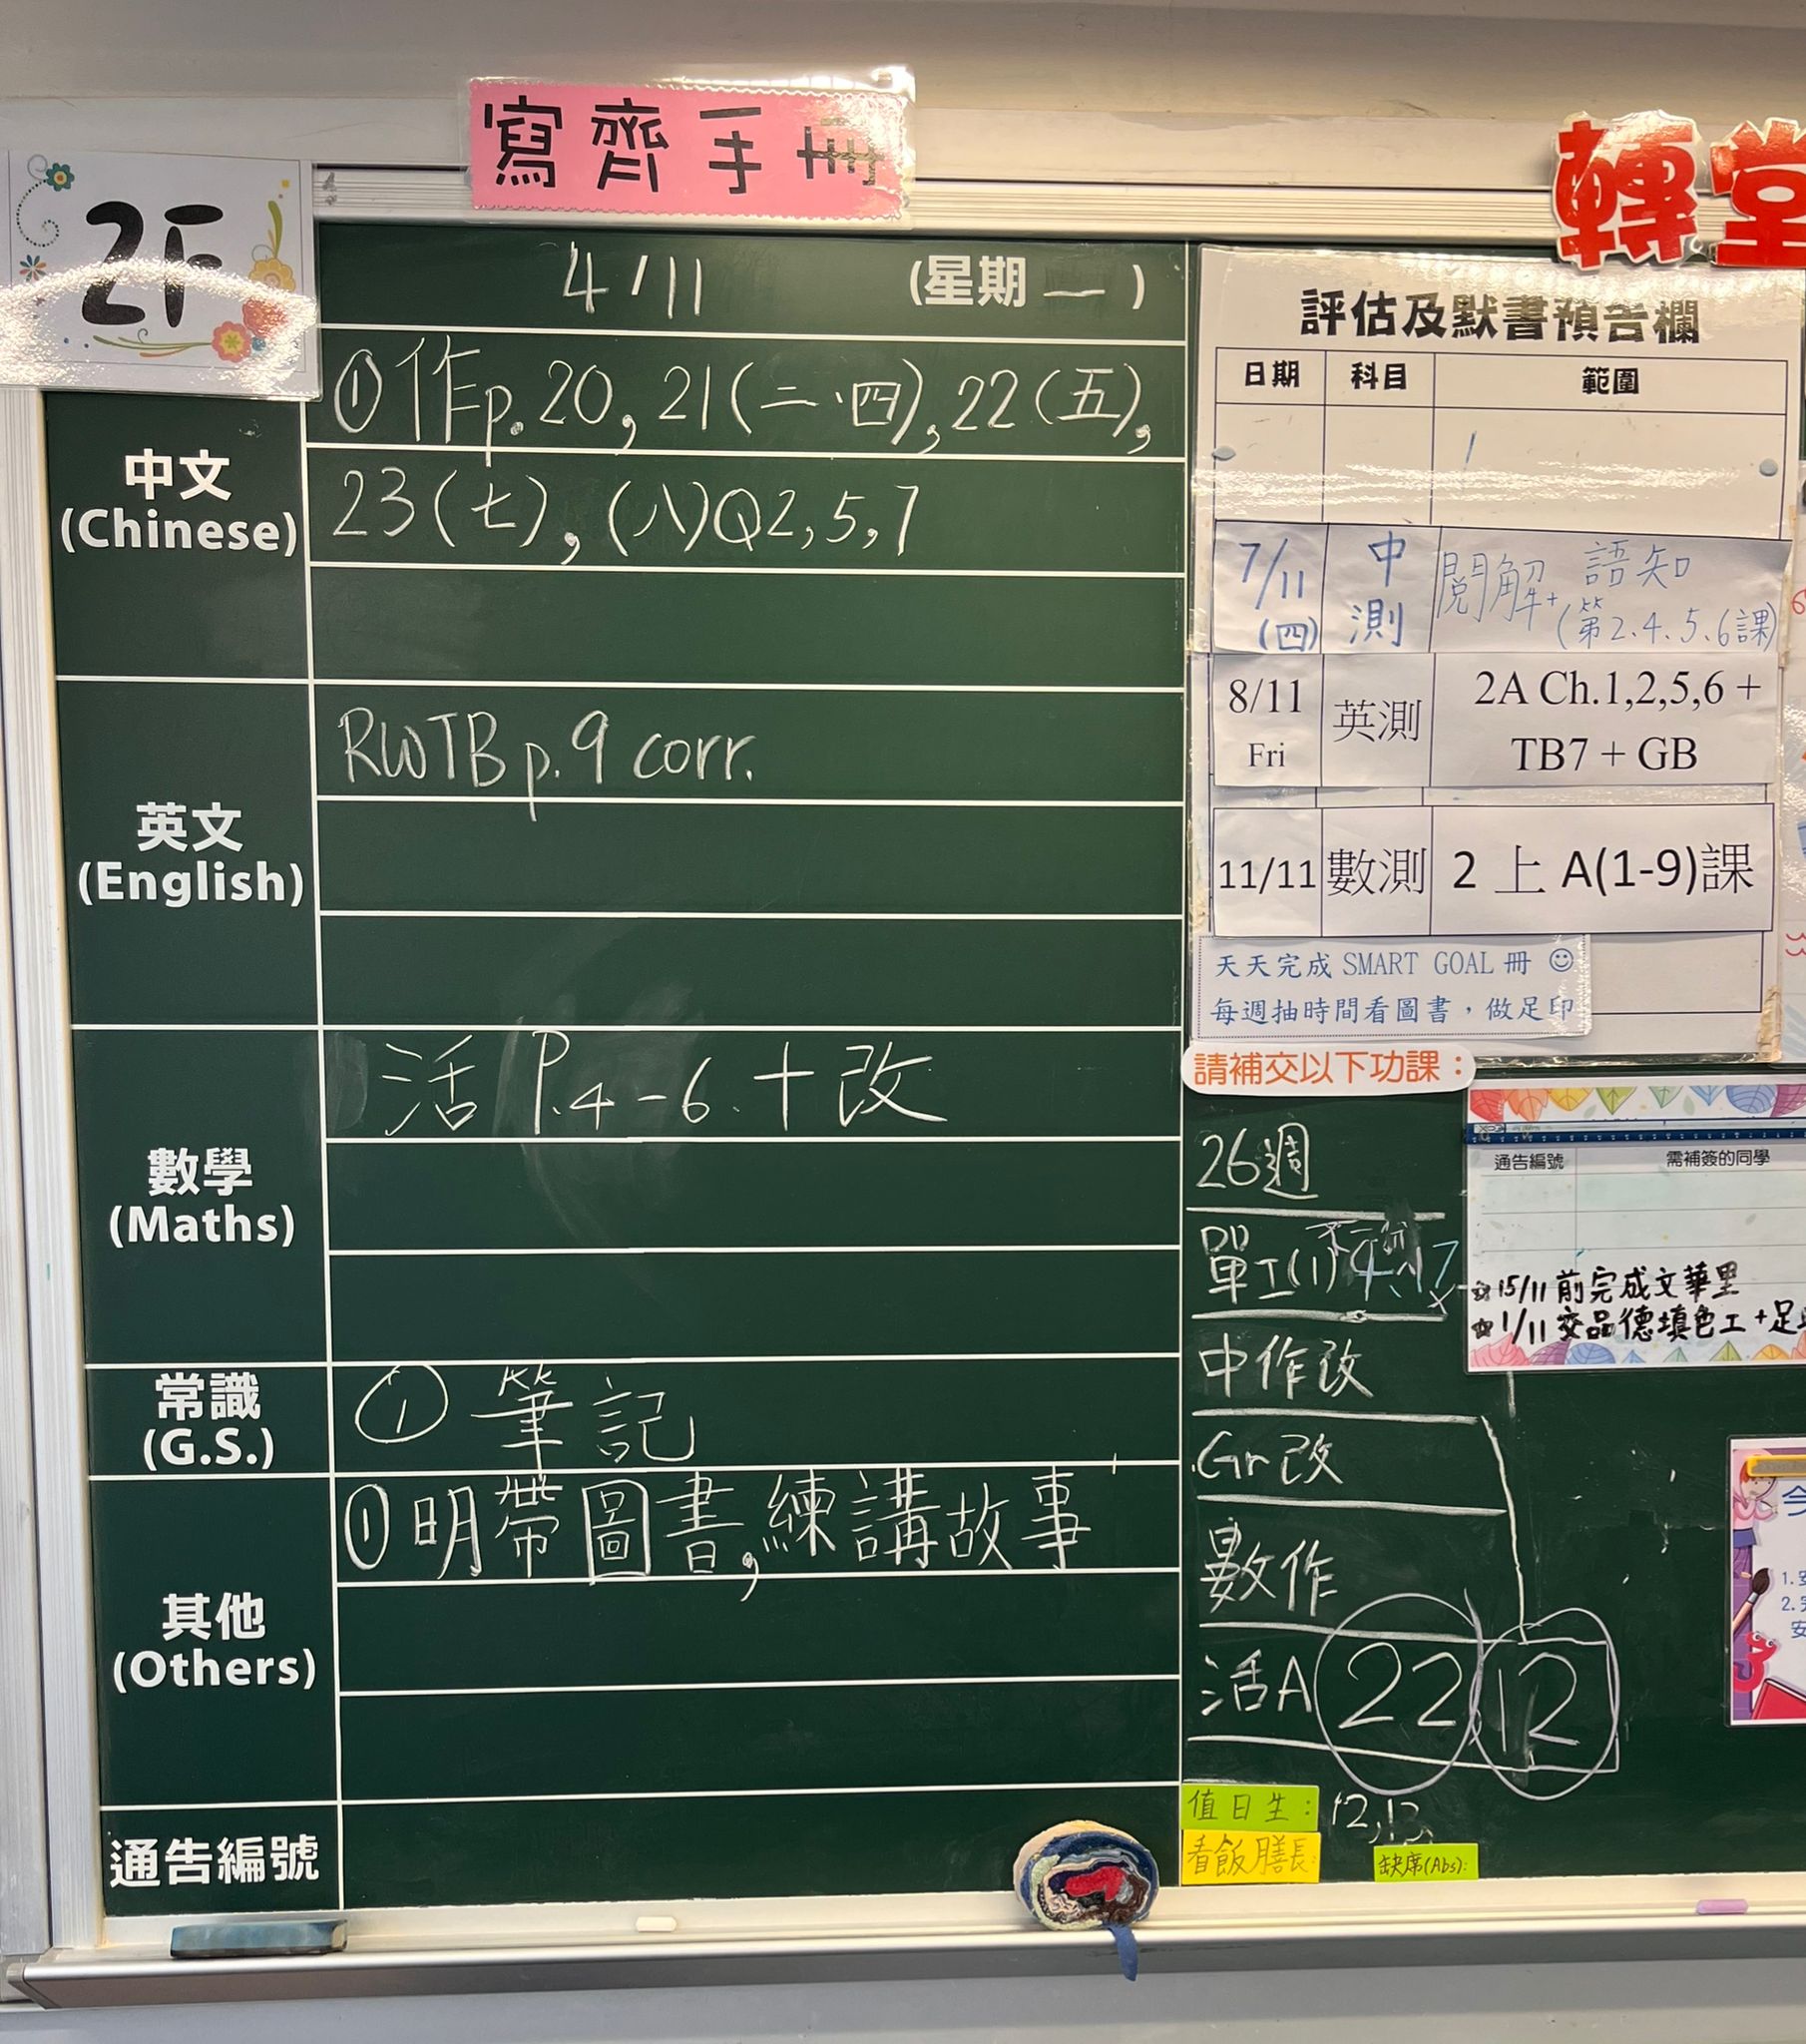 寫齊手冊
轉堂
2F
4/11 (星期一)
中文
(Chinese)
①作p.20, 21(二、四), 22(五),
23(七), (八)Q2,5,7
英文
(English)
RWTB p.9 corr.
數學
(Maths)
活 P.4-6.+改
常識
(G.S.)
① 筆記
其他
(Others)
①明帶圖書,練講故事
通告編號
評估及默書預告欄
日期 科目 範圍
7/11 (四) 中測 閱解+語知(第2.4.5.6課)
8/11 Fri 英測 2A Ch.1,2,5,6 +
TB7 + GB
11/11 數測 2 上 A(1-9)課
天天完成 SMART GOAL 冊 ☺
每週抽時間看圖書，做足印
請補交以下功課：
26週
單工(1)
中作改
Gr改
數作
活A 22 12
通告編號 需補簽的同學
☆15/11 前完成文華里
☆1/11 交品德填色工+足
值日生： 12,13,
看飯膳長:
缺席(Abs):
今
1.
2.